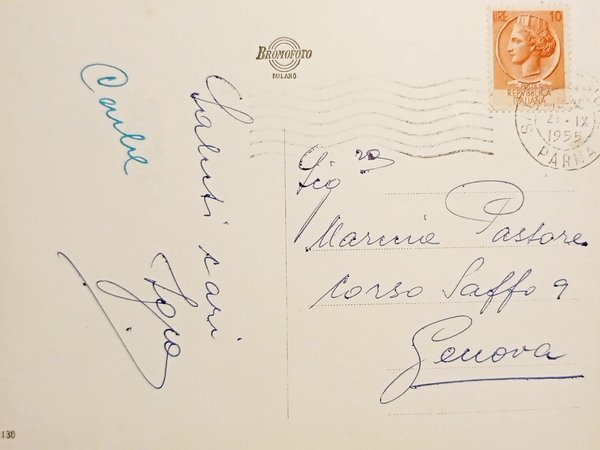 BROMOFOTO
MILANO
LIRE 10
REPVBBLICA
ITALIANA
21-IX
1955
PARMA
Saluti cari
Sig.ra
Marina Pastore
Corso Saffo 9
Genova
130